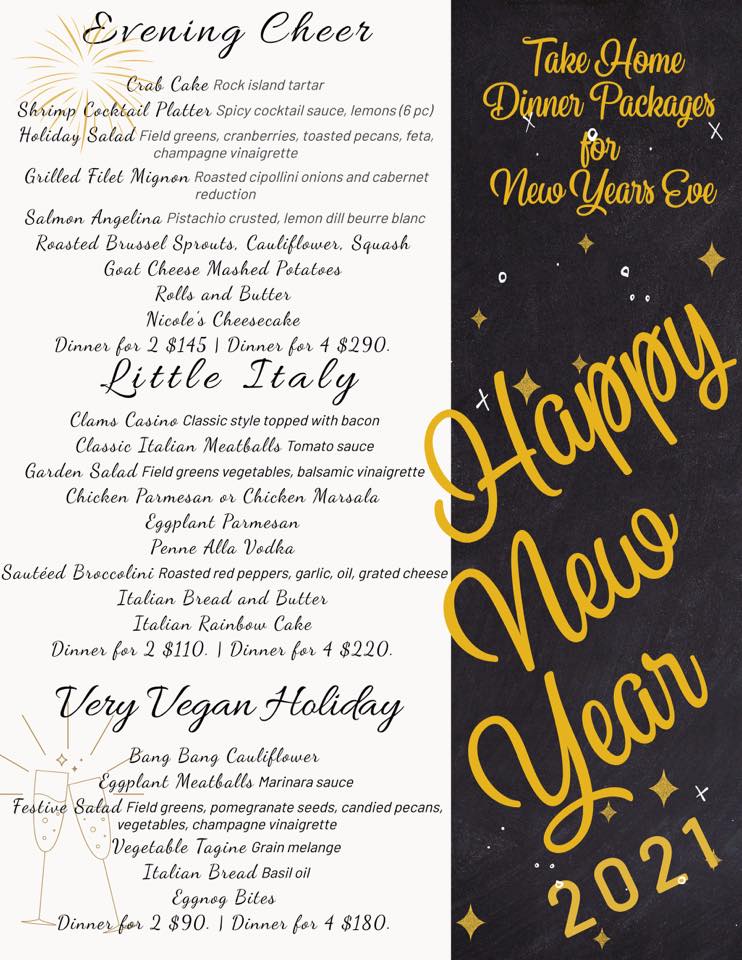 Evening Cheer
Crab Cake Rock island tartar
Shrimp Cocktail Platter Spicy cocktail sauce, lemons (6 pc)
Holiday Salad Field greens, cranberries, toasted pecans, feta,
champagne vinaigrette
Grilled Filet Mignon Roasted cipollini onions and cabernet
reduction
Salmon Angelina Pistachio crusted, lemon dill beurre blanc
Roasted Brussel Sprouts, Cauliflower, Squash
Goat Cheese Mashed Potatoes
Rolls and Butter
Nicole's Cheesecake
Dinner for 2 $145 | Dinner for 4 $290.
Little Italy
Clams Casino Classic style topped with bacon
Classic Italian Meatballs Tomato sauce
Garden Salad Field greens vegetables, balsamic vinaigrette
Chicken Parmesan or Chicken Marsala
Eggplant Parmesan
Penne Alla Vodka
Sautéed Broccolini Roasted red peppers, garlic, oil, grated cheese
Italian Bread and Butter
Italian Rainbow Cake
Dinner for 2 $110. | Dinner for 4 $220.
Very Vegan Holiday
Bang Bang Cauliflower
Eggplant Meatballs Marinara sauce
Festive Salad Field greens, pomegranate seeds, candied pecans,
vegetables, champagne vinaigrette
Vegetable Tagine Grain melange
Italian Bread Basil oil
Eggnog Bites
Dinner for 2 $90. | Dinner for 4 $180.
Take Home
Dinner Packages
for
New Years Eve
Happy
New
Year
2021